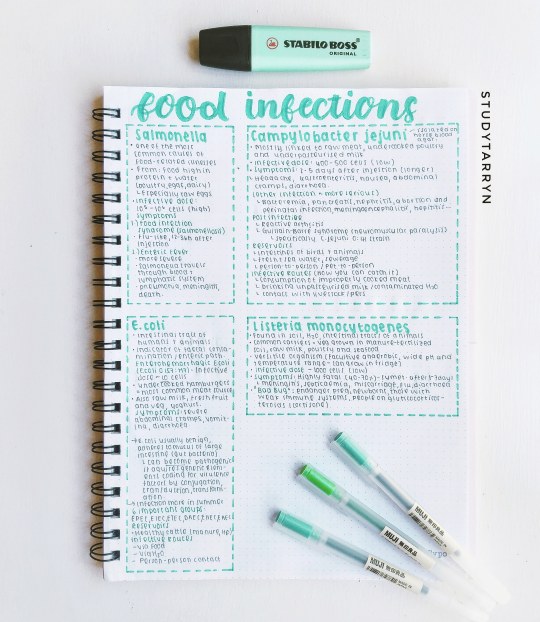 STABILO BOSS
ORIGINAL
STUDYTARRYN
food infections
Salmonella
• one of the most
common causes of
food-related illnesses
• from: food high in
protein + water
(poultry, eggs, dairy)
↳ Especially raw eggs
• infective dose:
(high)
symptoms
1) Food infection
syndrome (salmonellosis)
flu-like, after
ingestion
2) Enteric fever
more severe
salmonella travels
through blood +
lymphatic system
pneumonia, meningitis,
death
Campylobacter jejuni
isolated on
horse blood
agar
• mostly linked to raw meat, undercooked poultry
and unpasteurized milk
• infective dose: 400-500 cells (low)
• symptoms: 2-5 days after ingestion (longer)
headache, gastroenteritis, nausea, abdominal
cramps, diarrhea
(other infection = more serious)
↳ Bacteremia, pancreas, hepatitis, abortion and
perinatal infection, meningoencephalitis,
Post infective
↳ Reactive arthritis
↳ Guillain-Barré syndrome (neuromuscular paralysis)
↳ specifically C. jejuni O:19 strain
Reservoirs
↳ intestines of birds + animals
↳ Fresh + sea water, sewerage
↳ person-to-person / pet-to-person
infective routes (how you can catch it)
↳ consumption of improperly cooked meat
↳ drinking unpasteurized milk/contaminated H₂O
↳ contact with livestock/pets
E.coli
• intestinal tract of
humans + animals
• indicator of faecal conta-
mination/enteric path.
Enterohemorrhagic E.coli
• infective
dose = 10 cells
• undercooked hamburgers
= most common meat source
• Also raw milk, fresh fruit
and veg, yoghurt
symptoms: severe
abdominal cramps, vomit-
ing, diarrhoea
→ E. coli usually benign,
of large
intestine (gut bacteria)
↳ can become pathogenic
if acquire genetic elem-
ents coding for virulence
factors by conjugation,
transduction, transform-
ation
↳ infection more in summer
6 important groups
Reservoirs
- Healthy cattle (manure,
infective routes
- via food
- via H₂O
- Person-person contact
Listeria monocytogenes
• found in soil, H₂O, (intestinal tract) of animals
• common carriers - veg grown in manure-fertilized
soil, raw milk, poultry and seafood
• versatile organism (facultative anaerobic, wide pH and
temperature range - can grow in fridge)
• infective dose - 1000 cells (low)
• symptoms:
↳ meningitis, septicaemia, miscarriage, flu, diarrhoea
"Bad Bug": endanger preg, newborns, those with
weak immune systems, people on glucocortico-
steroids (cortisone)
MUJI 無印良品
MUJI 無印良品
MUJI 無印良品